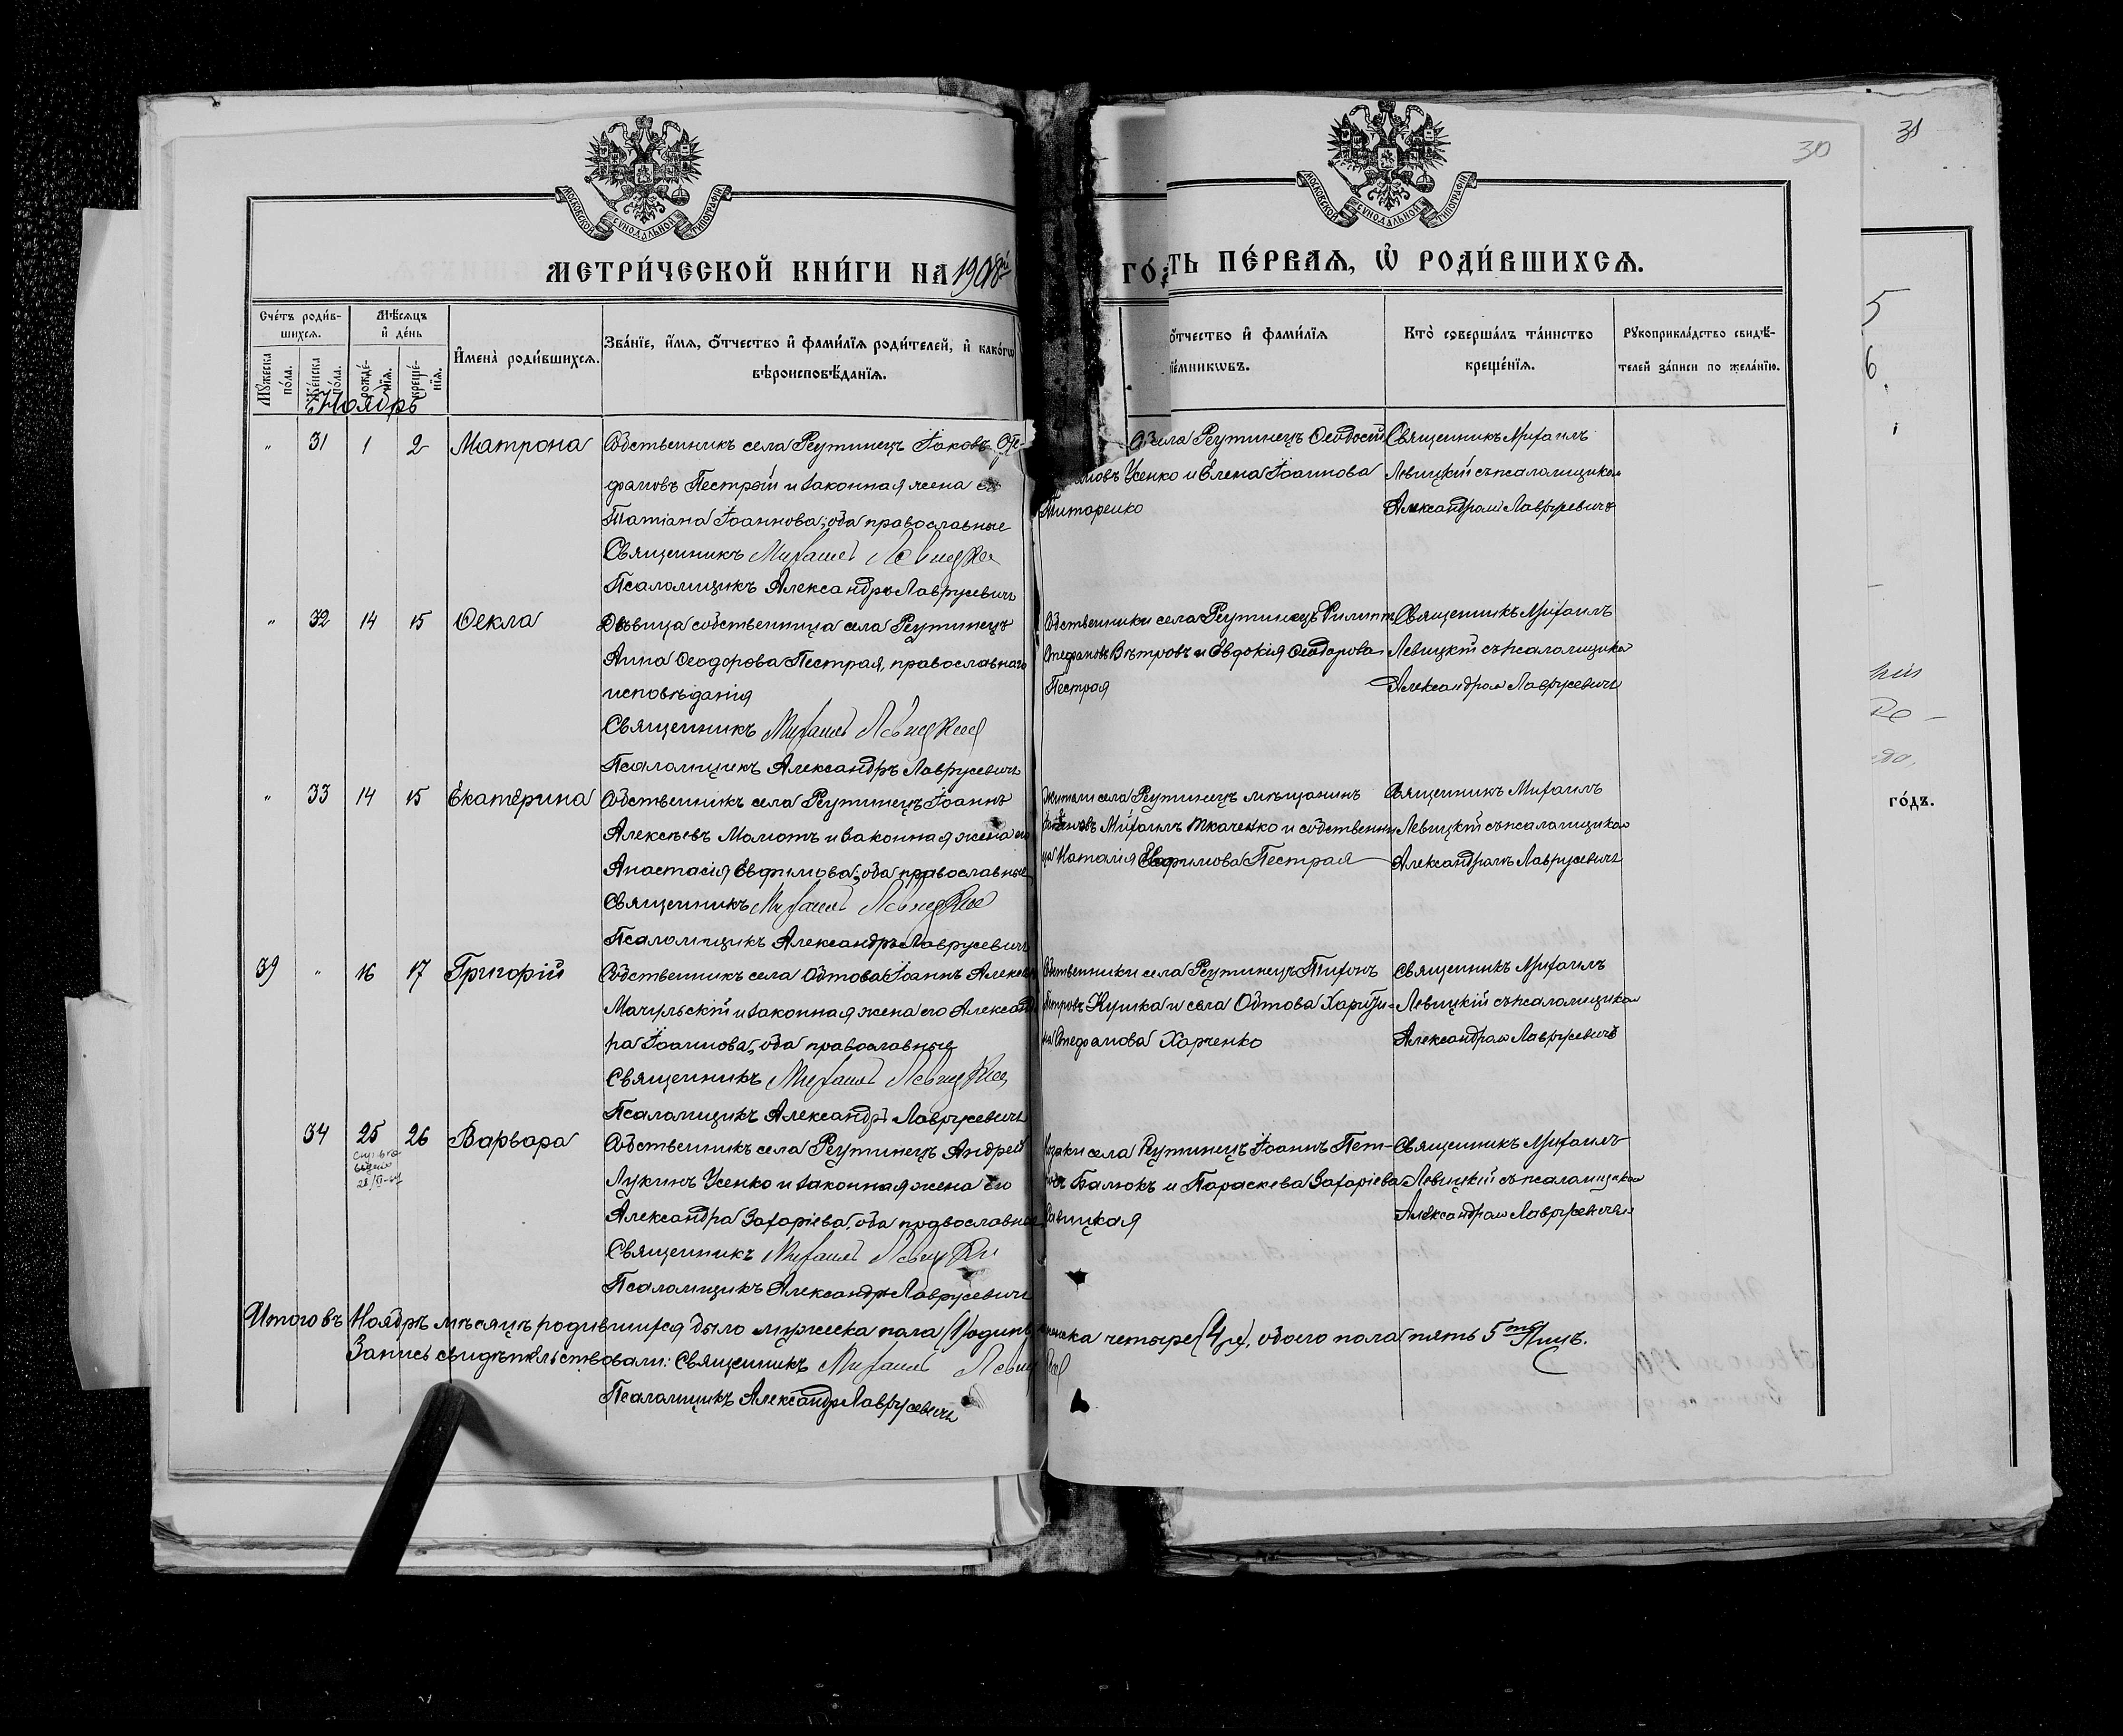 30
31
МОСКОВСКОЙ СѴНОДАЛЬНОЙ ТИПОГРАФІИ
МОСКОВСКОЙ СѴНОДАЛЬНОЙ ТИПОГРАФІИ
МЕТРИ́ЧЕСКОЙ КНИ́ГИ НА 1908й
ГО́Д
ТЬ ПЕ́РВАѦ, Ѡ҆ РОДИ́ВШИХСѦ.
Сче́тъ роди́в-
шихсѧ.
Мꙋ́жеска по́ла.
Же́нска по́ла.
Мѣ́сѧцъ
и҆ де́нь
рожде́-
нїѧ.
креще́-
нїѧ.
И҆мена̀ роди́вшихсѧ.
Зва́нїе, и҆́мѧ, ѻ҆́тчество и҆ фами́лїѧ роди́телей, и҆ како́гѡ
вѣроисповѣ́данїѧ.
ѻ҆́тчество и҆ фами́лїѧ
їе́мникѡвъ.
Кто̀ соверша́лъ та́инство
креще́нїѧ.
Рꙋкоприкла́дство свидѣ́-
телей за́писи по жела́нїю.
Ноябрь
" 31 1 2 Матрона
Собственникъ села Реутинецъ Іаковъ Сте-
фановъ Пестрый и законная жена его
Татіана Іоаннова; оба православные
Священникъ Михаилъ Левицкій
Псаломщикъ Александръ Лаврусевичъ
села Реутинецъ Ѳеодосій
Усенко и Елена Іоаннова
Титаренко
Священникъ Михаилъ
Левицкій съ псаломщикомъ
Александромъ Лаврусевичъ
" 32 14 15 Ѳекла
Дѣвица собственница села Реутинецъ
Анна Ѳеодорова Пестрая, православнаго
исповѣданія
Священникъ Михаилъ Левицкій
Псаломщикъ Александръ Лаврусевичъ
Собственники села Реутинецъ Филиппъ
Стефановъ Вѣтровъ и Евдокія Ѳеодорова
Пестрая
Священникъ Михаилъ
Левицкій съ псаломщикомъ
Александромъ Лаврусевичъ
" 33 14 15 Екатерина
Собственникъ села Реутинецъ Іоаннъ
Алексѣевъ Маматъ и законная жена его
Анастасія Евфимова; оба православные
Священникъ Михаилъ Левицкій
Псаломщикъ Александръ Лаврусевичъ
Жители села Реутинецъ мѣщанинъ
Михаилъ Ткаченко и собственни-
ца Наталія Евфимова Пестрая
Священникъ Михаилъ
Левицкій съ псаломщикомъ
Александромъ Лаврусевичъ
39 " 16 17 Григорій
Собственникъ села Обтова Іоаннъ Алексѣевъ
Мачульскій и законная жена его Александ-
ра Іоаннова; оба православные
Священникъ Михаилъ Левицкій
Псаломщикъ Александръ Лаврусевичъ
Собственники села Реутинецъ Тихонъ
Петровъ Кушка и села Обтова Харити-
на Стефанова Харченко
Священникъ Михаилъ
Левицкій съ псаломщикомъ
Александромъ Лаврусевичъ
34 25 26 Варвара
Собственникъ села Реутинецъ Андрей
Лукинъ Усенко и законная жена его
Александра Захаріева; оба православные
Священникъ Михаилъ Левицкій
Псаломщикъ Александръ Лаврусевичъ
Козаки села Реутинецъ Іоаннъ Пет-
ровъ Балюкъ и Параскева Захаріева
Савицкая
Священникъ Михаилъ
Левицкій съ псаломщикомъ
Александромъ Лаврусевичъ
Итого въ Ноябрѣ мѣсяцѣ родившихся было мужеска пола (1) одинъ, женска четыре (4), обоего пола пять 5 лицъ.
Запись свидѣтельствовали: Священникъ Михаилъ Левицкій
Псаломщикъ Александръ Лаврусевичъ
5
6.
го́дъ.